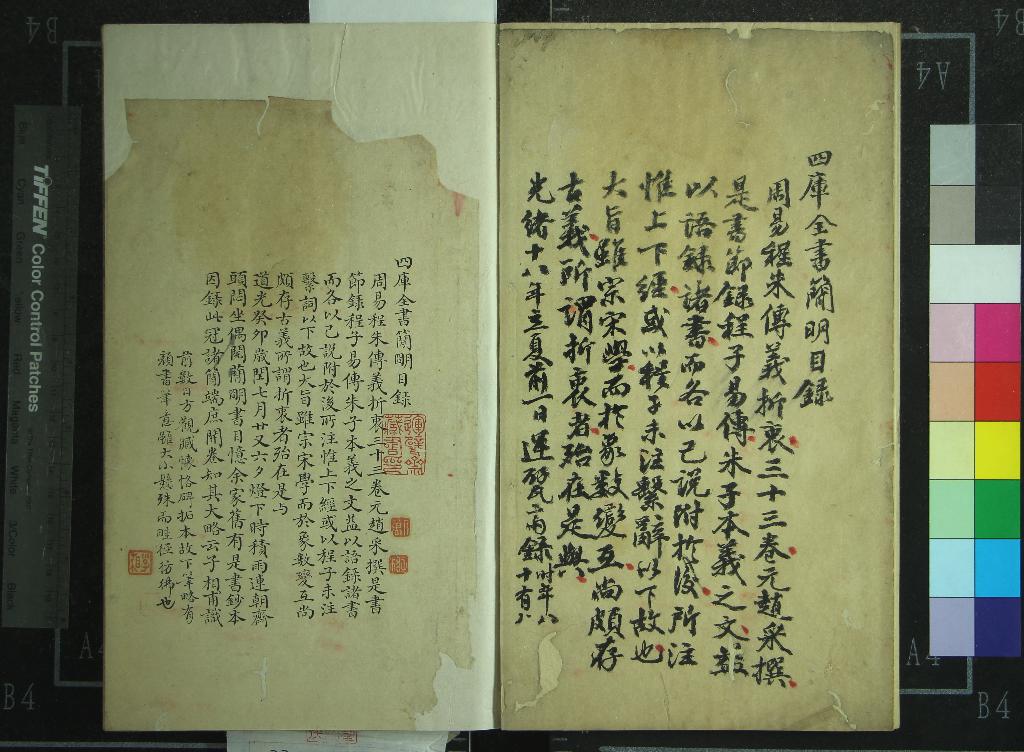 四庫全書簡明目錄
周易程朱傳義折衷三十三卷元趙采撰
是書節錄程子易傳朱子本義之文益
以語錄諸書而各以己說附於後所注
惟上下經或以程子未注繫辭以下故也
大旨雖宗宋學而於象數變互尚頗存
古義所謂折衷者殆在是與
光緒十八年立夏前一日運甓齋錄時年八十有八
四庫全書簡明目錄
周易程朱傳義折衷三十三卷元趙采撰是書
節錄程子易傳朱子本義之文益以語錄諸書
而各以己說附於後所注惟上下經或以程子未注
繫詞以下故也大旨雖宗宋學而於象數變互尚
頗存古義所謂折衷者殆在是与
道光癸卯歲閏七月廿又六夕燈下時積雨連朝齋
頭悶坐偶閱簡明書目憶余家舊有是書鈔本
因錄此冠諸簡端庶開卷知其大略云子相甫識
前數日方觀臧懷恪碑拓本故下筆略有
顏書筆意雖大小懸殊而蹊徑彷彿也
運甓齋藏書印
TIFFEN Color Control Patches
A4
B4